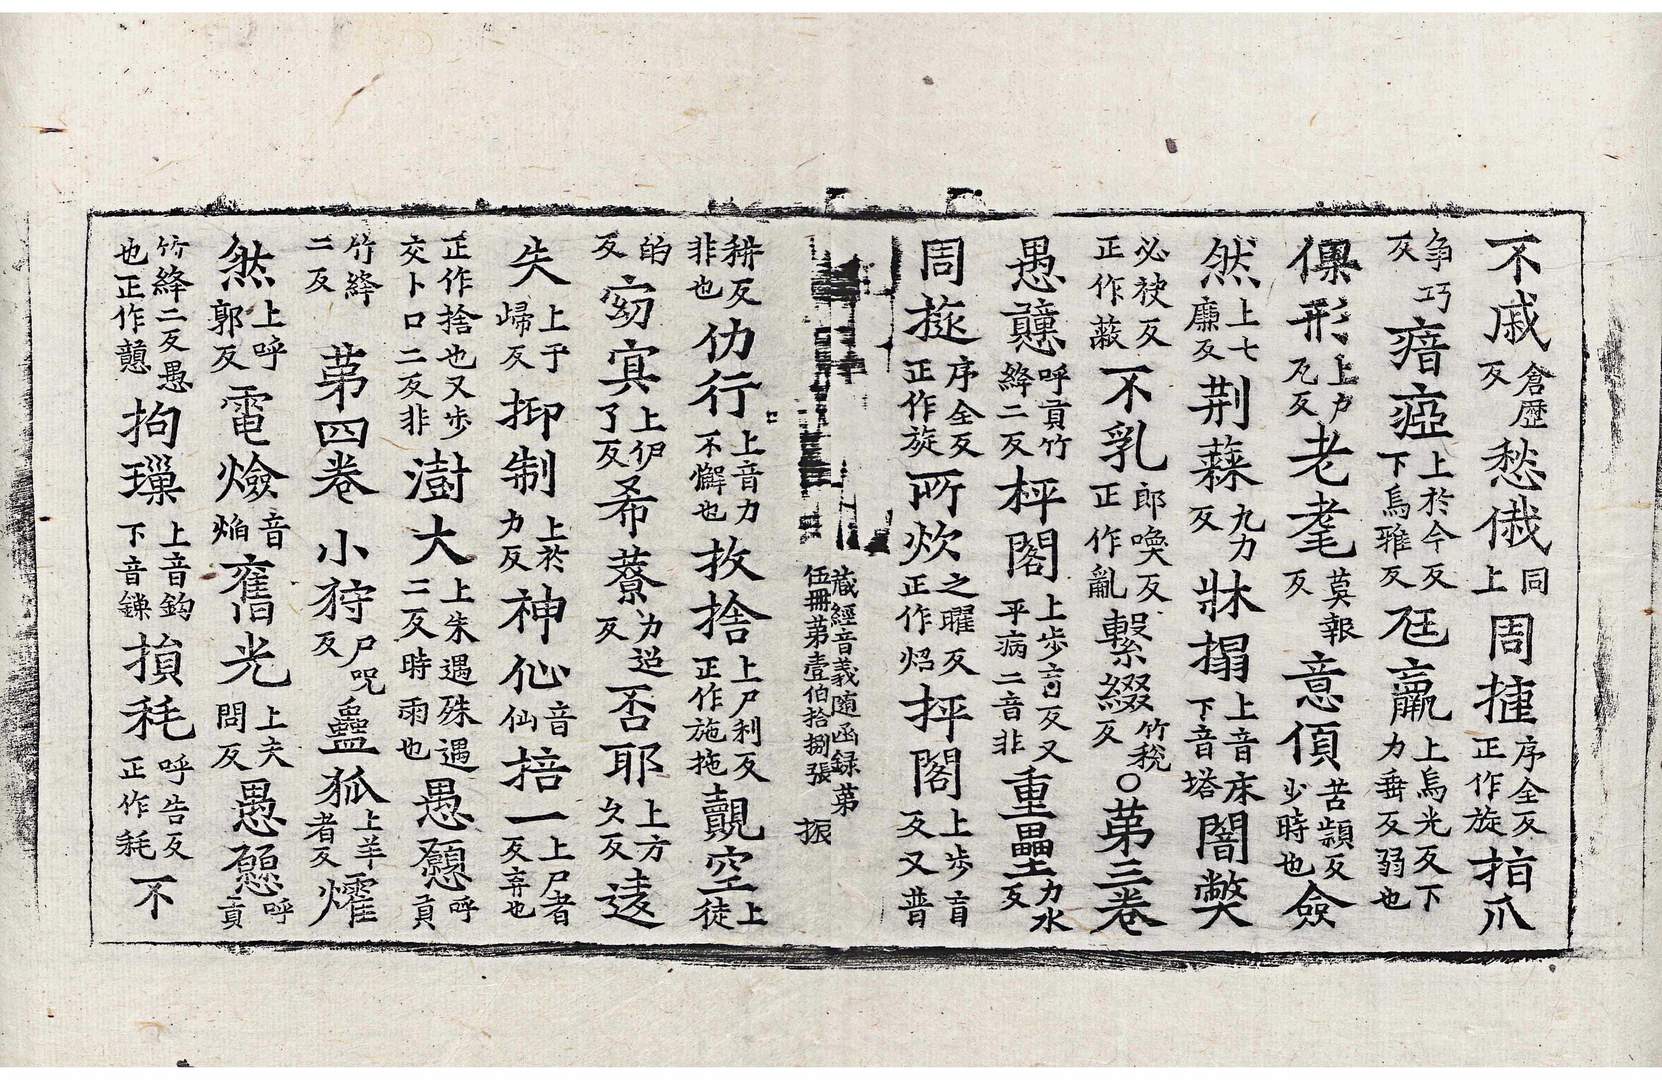 不戚倉歷反愁俄同上周揵序全反正作旋㧊爪
爭巧反瘖瘂上於今反下烏雅反尫羸上烏光反下力垂反弱也
倮形上户瓦反老耄莫報反意傾苦頴反少時也僉
然上七廉反荆蕀九力反牀搨上音床下音塔闇弊
必袂反正作蔽不乳郎喚反正作亂繫綴竹稅反○苐三卷
愚戇呼貢竹絳二反枰閣上步盲反又平病二音非重壘力水反
周㨕序全反正作旋所炊之曜反正作炤抨閣上步盲反又普
藏經音義隨函録苐伍冊苐壹伯拾捌張 振
耕反非也仂行上音力不懈也㧊捨上尸利反正作施拖覿空上徒
的反窈㝠上伊了反希藔力迢反否耶上方久反逵
失上于歸反抑制上於力反神仚音仙掊一上尸者反弃也
正作捨也又步交卜口二反非澍大上朱遇殊遇二反時雨也愚戇呼貢
竹絳二反苐四卷小狩尸呪反蠱狐上羊者反燿
然上呼郭反電燄音焔舊光上夫問反愚戇呼貢
竹絳二反愚也正作戇拘璅上音鈎下音鏁損秏呼告反正作耗不